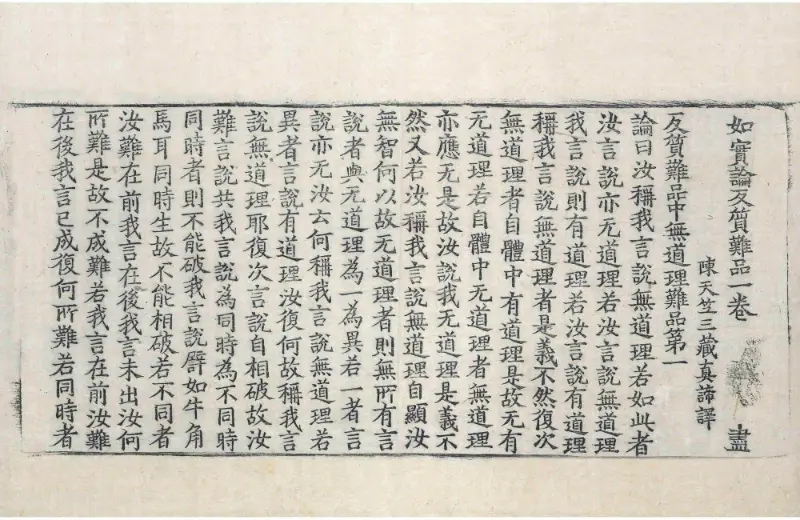 如實論反質難品一卷　盡
陳天竺三藏真諦譯
反質難品中無道理難品第一
論曰汝稱我言說無道理若如此者
汝言說亦无道理若汝言說無道理
我言說則有道理若汝言說有道理
稱我言說無道理者是義不然復次
無道理者自體中有道理是故无有
无道理若自體中无道理者無道理
亦應无是故汝說我无道理是義不
然又若汝稱我言說無道理自顯汝
無智何以故无道理者則無所有言
說者與无道理為一為異若一者言
說亦无汝云何稱我言說無道理若
異者言說有道理汝復何故稱我言
說無道理耶復次言說自相破故汝
難言說共我言說為同時為不同時
同時者則不能破我言說譬如牛角
馬耳同時生故不能相破若不同者
汝難在前我言在後我言未出汝何
所難是故不成難若我言在前汝難
在後我言已成復何所難若同時者